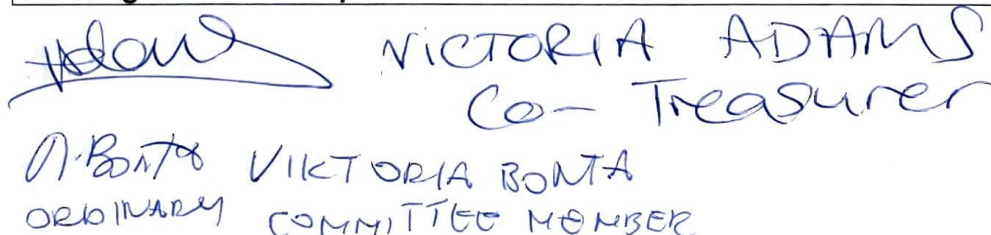 VICTORIA ADAMS
Co- Treasurer
VIKTORIA BONTA
ORDINARY COMMITTEE MEMBER